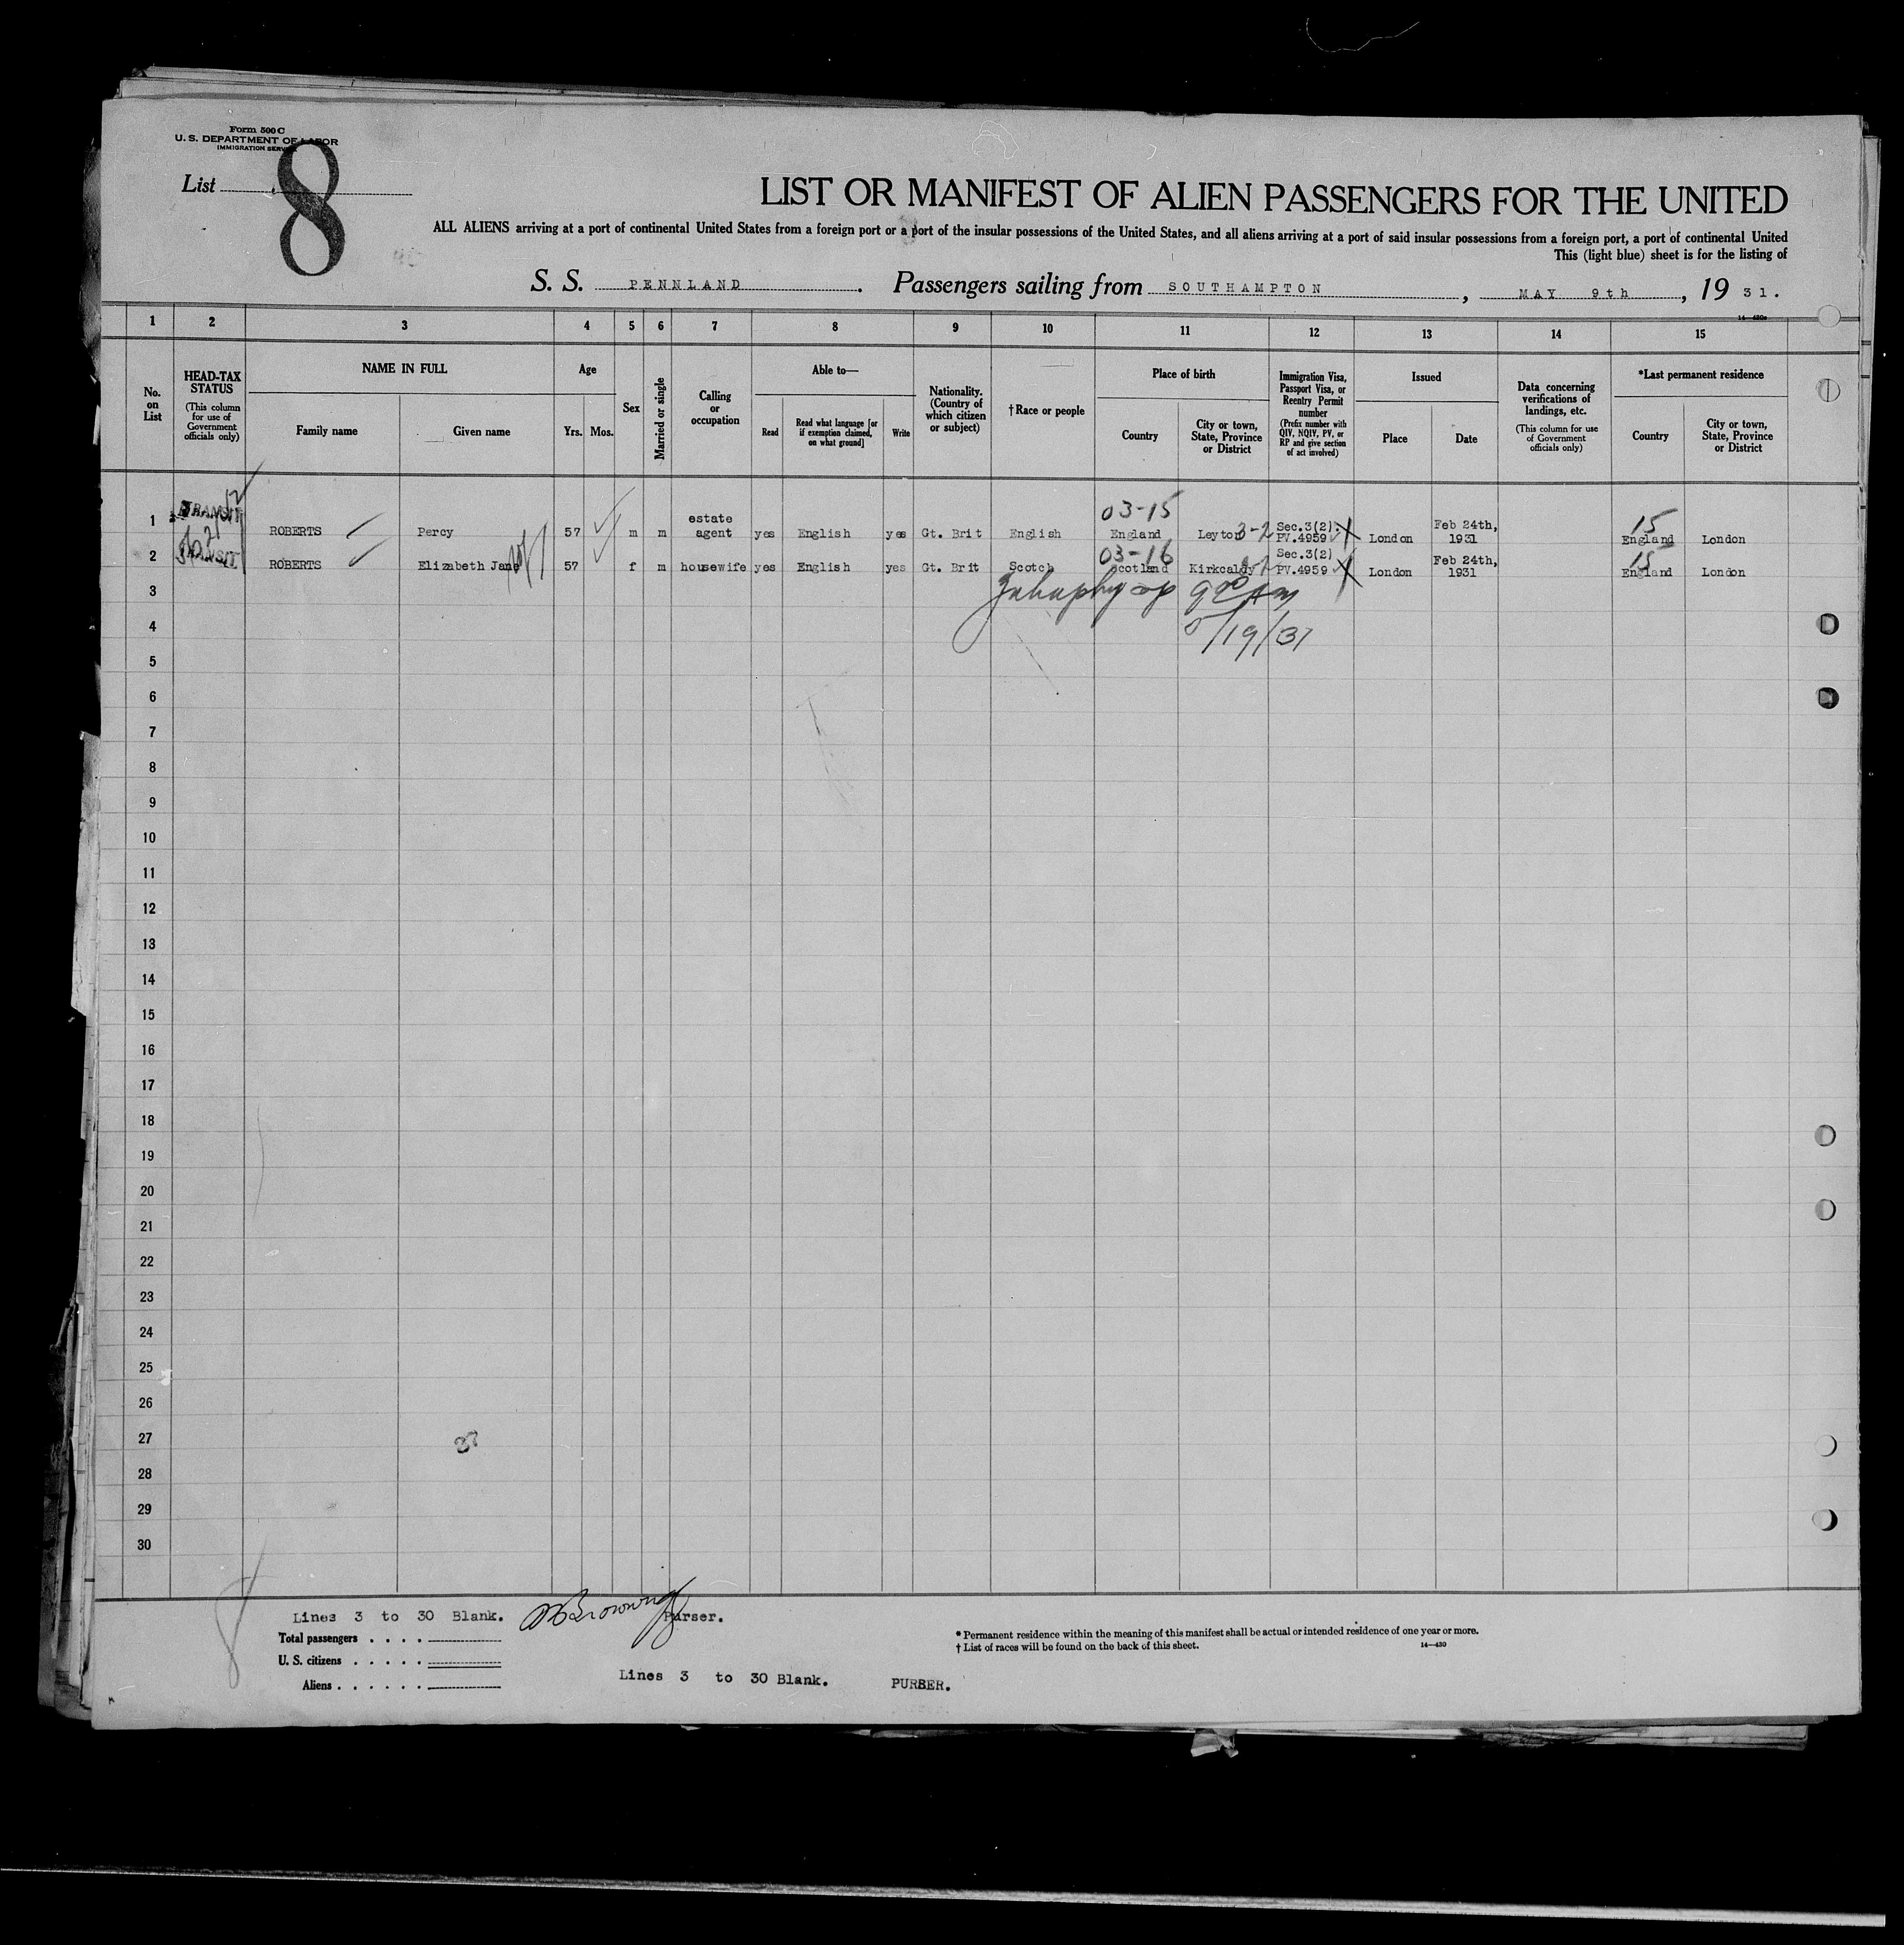 Form 500 C
U. S. DEPARTMENT OF LABOR
IMMIGRATION SERVICE
List 8
LIST OR MANIFEST OF ALIEN PASSENGERS FOR THE UNITED
ALL ALIENS arriving at a port of continental United States from a foreign port or a port of the insular possessions of the United States, and all aliens arriving at a port of said insular possessions from a foreign port, a port of continental United
This (light blue) sheet is for the listing of
S. S. PENNLAND. Passengers sailing from SOUTHAMPTON, MAY 9th, 19 31.
14—430a
1 2 3 4 5 6 7 8 9 10 11 12 13 14 15
No. on List
HEAD-TAX STATUS
(This column for use of Government officials only)
NAME IN FULL
Family name
Given name
Age
Yrs. Mos.
Sex
Married or single
Calling or occupation
Able to—
Read
Read what language [or if exemption claimed, on what ground]
Write
Nationality. (Country of which citizen or subject)
† Race or people
Place of birth
Country
City or town, State, Province or District
Immigration Visa, Passport Visa, or Reentry Permit number
(Prefix number with QIV, NQIV, PV, or RP and give section of act involved)
Issued
Place
Date
Data concerning verifications of landings, etc.
(This column for use of Government officials only)
*Last permanent residence
Country
City or town, State, Province or District
03-15
15
1 TRANSIT ROBERTS Percy 57 m m estate agent yes English yes Gt. Brit English England Leyton 3-2 Sec.3(2) PV.4959 London Feb 24th, 1931 England London
03-16
15
2 TRANSIT ROBERTS Elizabeth Jane 57 f m housewife yes English yes Gt. Brit Scotch Scotland Kirkcaldy Sec.3(2) PV.4959 London Feb 24th, 1931 England London
3
4
5/19/31
5
6
7
8
9
10
11
12
13
14
15
16
17
18
19
20
21
22
23
24
25
26
27
28
29
30
Lines 3 to 30 Blank. Browning Purser.
Total passengers
U. S. citizens
Aliens
* Permanent residence within the meaning of this manifest shall be actual or intended residence of one year or more.
† List of races will be found on the back of this sheet. 14—430
Lines 3 to 30 Blank. PURSER.
8